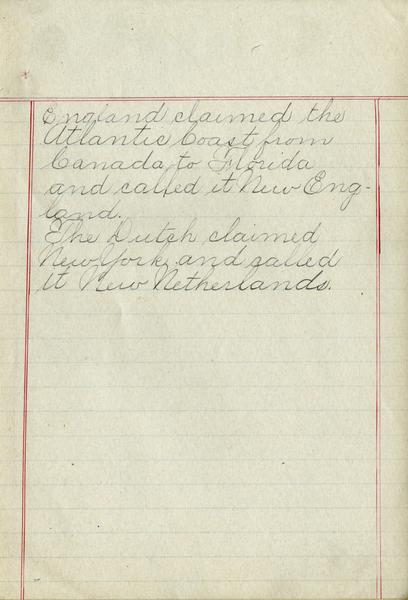 England claimed the
Atlantic Coast from
Canada to Florida
and called it New Eng-
land.
The Dutch claimed
New York and called
it New Netherlands.